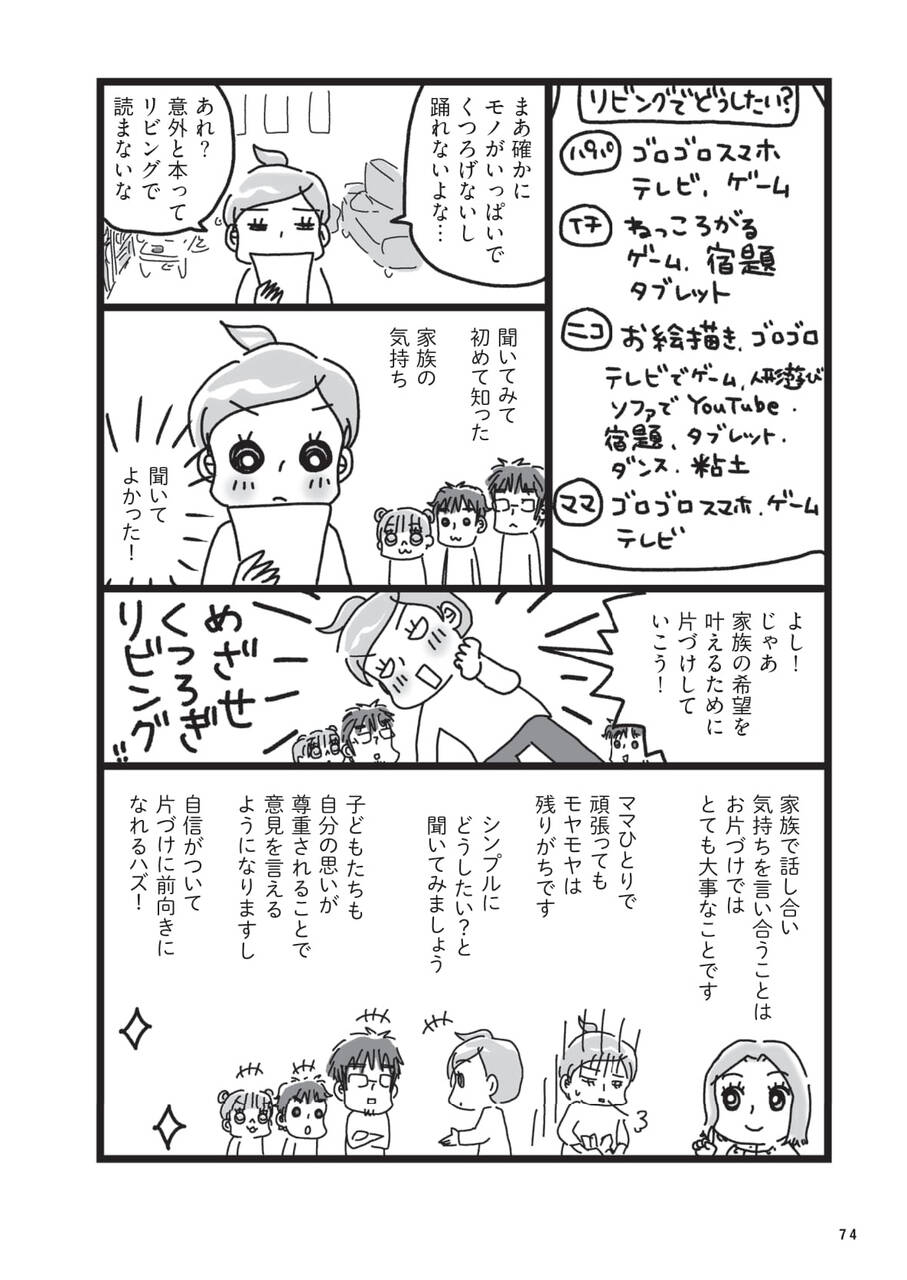 リビングでどうしたい?
パパ
ゴロゴロスマホ
テレビ、ゲーム
イチ
ねっころがる
ゲーム、宿題
タブレット
ニコ
お絵描き、ゴロゴロ
テレビでゲーム、人形遊び
ソファで YouTube・
宿題、タブレット・
ダンス・粘土
ママ
ゴロゴロスマホ、ゲーム
テレビ
まあ確かに
モノがいっぱいで
くつろげないし
踊れないよな…
あれ?
意外と本って
リビングで
読まないな
聞いてみて
初めて知った
家族の
気持ち
聞いて
よかった!
よし!
じゃあ
家族の希望を
叶えるために
片づけして
いこう!
めざせ
くつろぎ
リビング!!
家族で話し合い
気持ちを言い合うことは
お片づけでは
とても大事なことです
ママひとりで
頑張っても
モヤモヤは
残りがちです
シンプルに
どうしたい?と
聞いてみましょう
子どもたちも
自分の思いが
尊重されることで
意見を言える
ようになりますし
自信がついて
片づけに前向きに
なれるハズ!
74